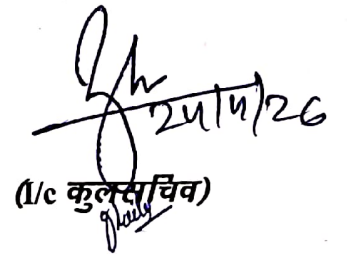 24/4/26
(I/c कुलसचिव)